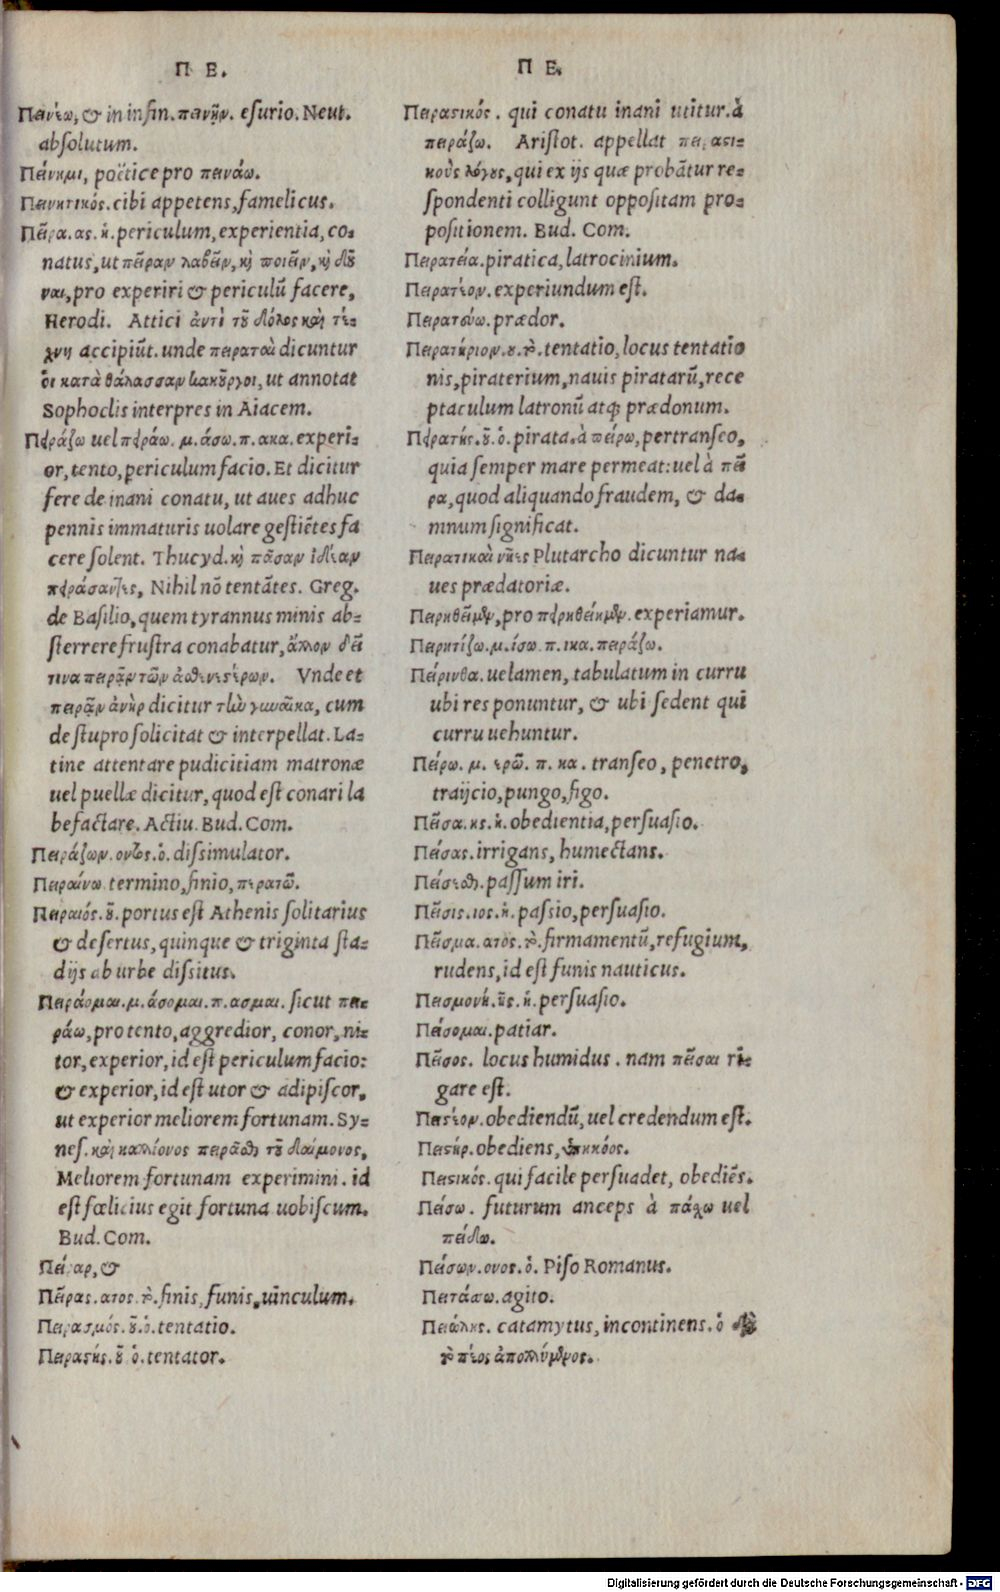 Π Ε.
Πεινέω, & in infin. πεινῆν. esurio. Neut.
absolutum.
Πείνημι, poëtice pro πεινάω.
Πεινητικός. cibi appetens, famelicus.
Πεῖρα. ας. ἡ. periculum, experientia, co-
natus, ut πεῖραν λαβεῖν, κὶ ποιεῖν, κὶ δοῦ
ναι, pro experiri & periculũ facere,
Herodi. Attici ἀντὶ τοῦ δόλος καὶ τέ-
χνη accipiũt. unde πειραταὶ dicuntur
οἱ κατὰ θάλασσαν κακοῦργοι, ut annotat
Sophoclis interpres in Aiacem.
Πειράζω uel πειράω. μ. άσω. π. ακα. experi-
or, tento, periculum facio. Et dicitur
fere de inani conatu, ut aues adhuc
pennis immaturis uolare gestiẽtes fa
cere solent. Thucyd. κὶ πᾶσαν ἰδέαν
πειράσαντες, Nihil nõ tentãtes. Greg.
de Basilio, quem tyrannus minis ab-
sterrere frustra conabatur, ἄλλον δεῖ
τινα πειρᾷν τῶν ἀσθενεστέρων. Vnde et
πειρᾷν ἀνὴρ dicitur τὴν γυναῖκα, cum
de stupro solicitat & interpellat. La-
tine attentare pudicitiam matronæ
uel puellæ dicitur, quod est conari la
befactare. Actiu. Bud. Com.
Πειράζων. οντος. ὁ. dissimulator.
Πειραίνω termino, finio, περατῶ.
Πειραιός. οῦ. portus est Athenis solitarius
& desertus, quinque & triginta sta-
dijs ab urbe dissitus.
Πειράομαι. μ. άσομαι. π. ασμαι. sicut πει-
ράω, pro tento, aggredior, conor, ni-
tor, experior, id est periculum facio:
& experior, id est utor & adipiscor,
ut experior meliorem fortunam. Sy-
nes. καὶ καλλίονος πειρᾶσθε τοῦ δαίμονος,
Meliorem fortunam experimini. id
est fœlicius egit fortuna uobiscum.
Bud. Com.
Πεῖραρ, &
Πεῖρας. ατος. τὸ. finis, funis, uinculum.
Πειρασμός. οῦ. ὁ. tentatio.
Πειραστής. οῦ ὁ. tentator.
Π Ε.
Πειραστικός. qui conatu inani utitur. à
πειράζω. Aristot. appellat πειραστι-
κοὺς λόγους, qui ex ijs quæ probãtur re-
spondenti colligunt oppositam pro-
positionem. Bud. Com.
Πειρατεία. piratica, latrocinium.
Πειρατέον. experiundum est.
Πειρατεύω. prædor.
Πειρατήριον. ου. τὸ. tentatio, locus tentatio
nis, piraterium, nauis piratarũ, rece
ptaculum latronũ atq; prædonum.
Πειρατής. οῦ. ὁ. pirata. à πείρω, pertranseo,
quia semper mare permeat: uel à πεῖ
ρα, quod aliquando fraudem, & da-
mnum significat.
Πειρατικαὶ νῆες Plutarcho dicuntur na-
ues prædatoriæ.
Πειρηθεῖμεν, pro πειρηθείημεν. experiamur.
Πειρητίζω. μ. ίσω. π. ικα. πειράζω.
Πείρινθα. uelamen, tabulatum in curru
ubi res ponuntur, & ubi sedent qui
curru uehuntur.
Πείρω. μ. ερῶ. π. κα. transeo, penetro,
traijcio, pungo, figo.
Πεῖσα. ης. ἡ. obedientia, persuasio.
Πείσας. irrigans, humectans.
Πείσεσθαι. passum iri.
Πεῖσις. ιος. ἡ. passio, persuasio.
Πεῖσμα. ατος. τὸ. firmamentũ, refugium,
rudens, id est funis nauticus.
Πεισμονή. ῆς. ἡ. persuasio.
Πείσομαι. patiar.
Πεῖσος. locus humidus. nam πεῖσαι ri-
gare est.
Πειστέον. obediendũ, uel credendum est.
Πειστήρ. obediens, ὑπήκοος.
Πειστικός. qui facile persuadet, obediẽs.
Πείσω. futurum anceps à πάσχω uel
πείθω.
Πείσων. ονος. ὁ. Piso Romanus.
Πειτάσω. agito.
Πειώλης. catamytus, incontinens. ὁ διὰ
τὸ πέος ἀπολλύμενος.
Digitalisierung gefördert durch die Deutsche Forschungsgemeinschaft - DFG